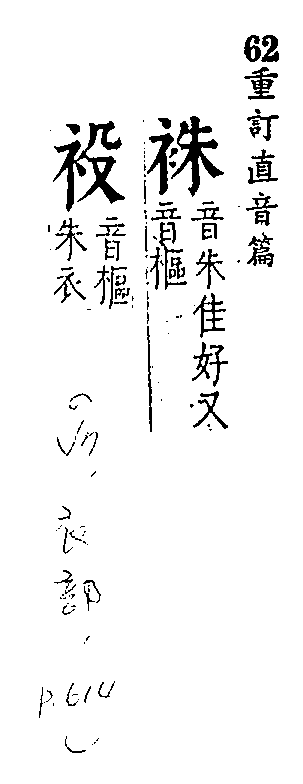 62重訂直音篇
袾
音朱佳好又
音樞
音樞
朱衣
衣部,
p.614